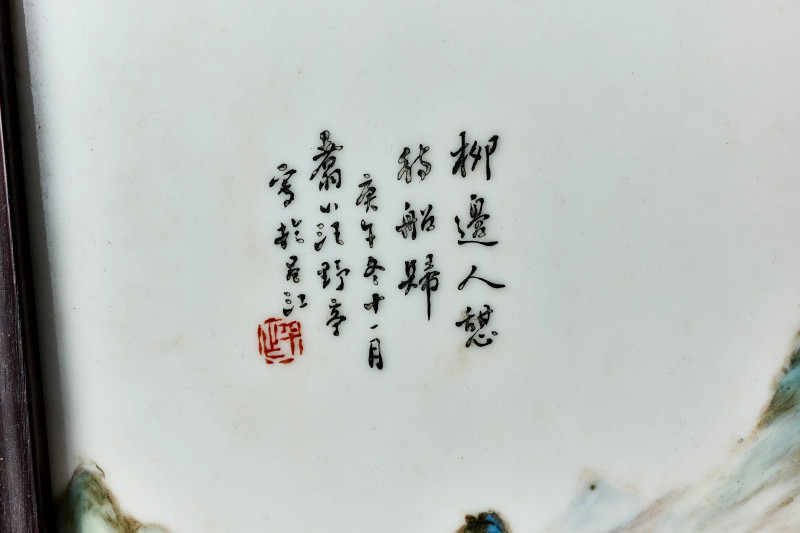 柳邊人憩
待船歸
庚午冬十一月
翥山汪野亭
寫於昌江